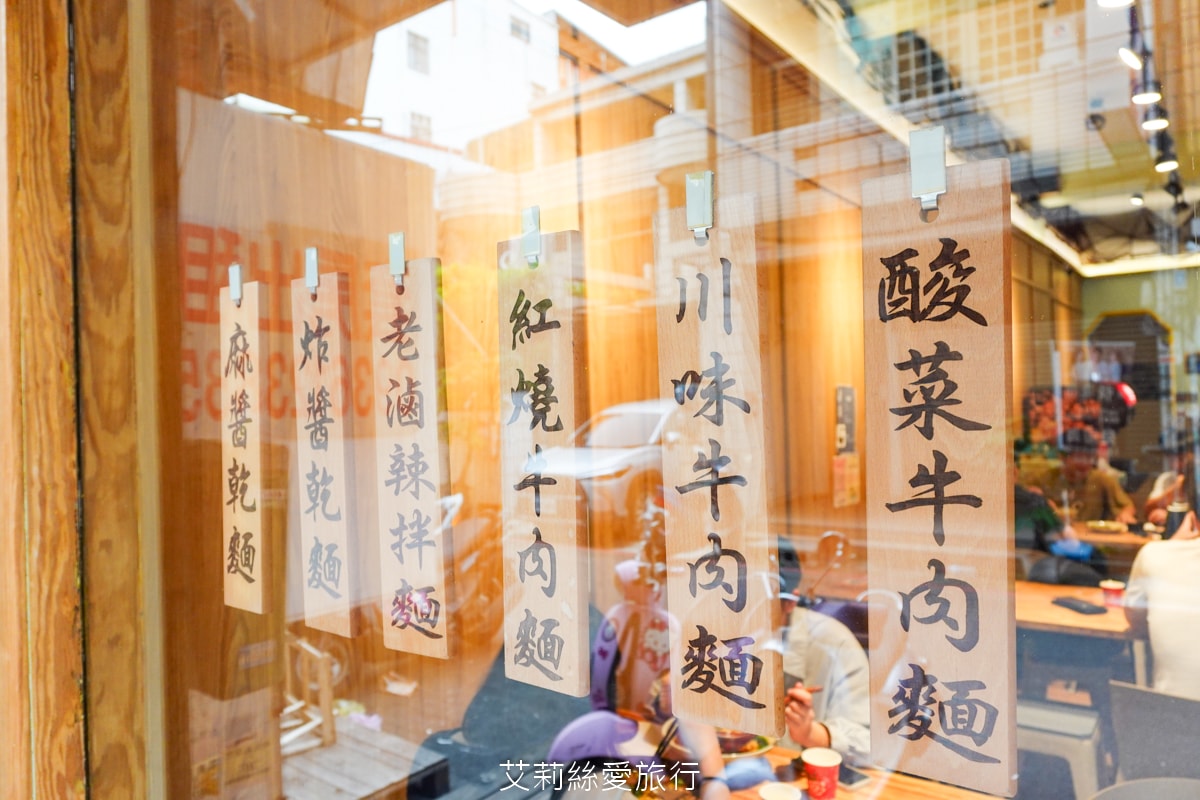 麻醬乾麵
炸醬乾麵
老滷辣拌麵
紅燒牛肉麵
川味牛肉麵
酸菜牛肉麵
艾莉絲愛旅行